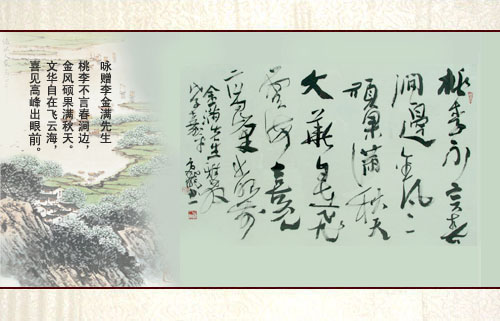 咏赠李金满先生
桃李不言春涧边,
金风硕果满秋天。
文华自在飞云海,
喜见高峰出眼前。
桃李不言春
涧邊金风
硕果满秋天
華自在飛
雲海喜見
高峰出眼前
金满先生